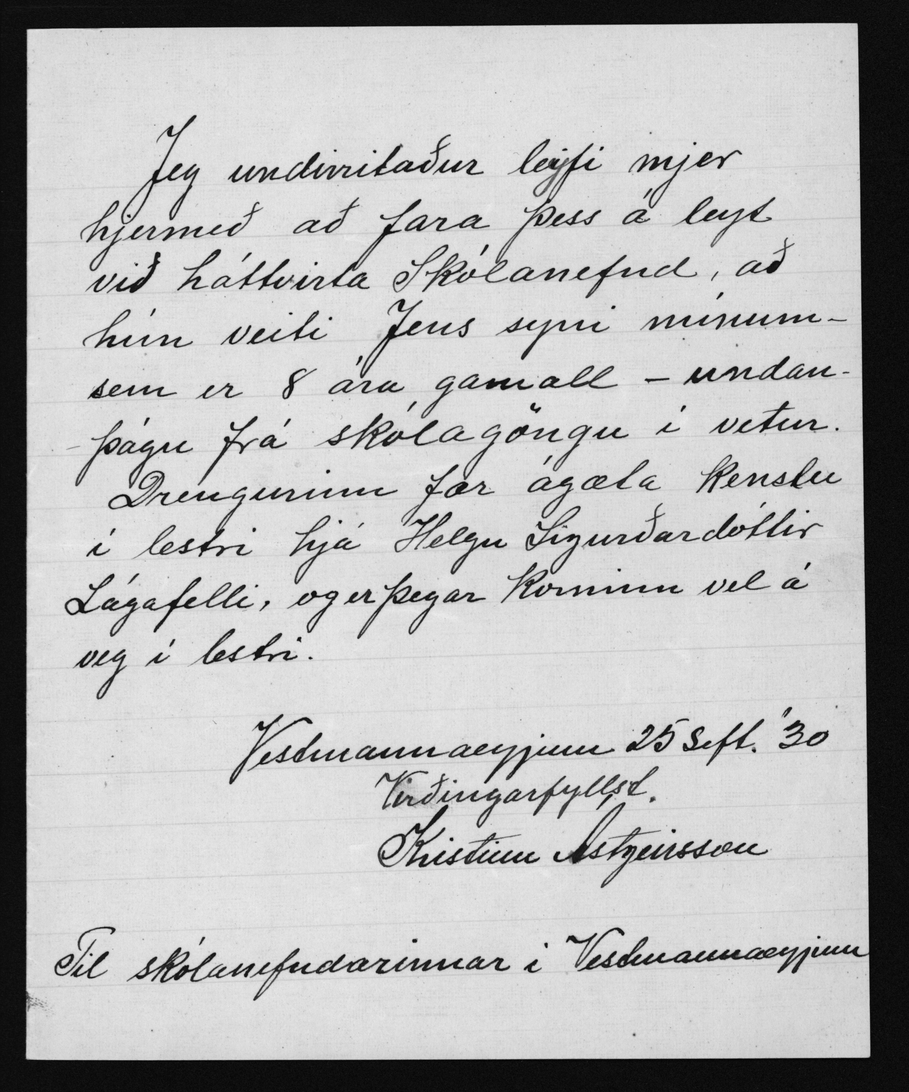 Jeg undirritaður leyfi mjer
hjermeð að fara þess á leyt
við háttvirta Skólanefnd, að
hún veiti Jens syni mínum -
sem er 8 ára gamall - undan-
- þágu frá skólagöngu í vetur.
Drengurinn fær ágæta kenslu
í lestri hjá Helgu Sigurðardóttir
Lágafelli, og er þegar kominn vel á
veg í lestri.
Vestmannaeyjum 25 Sept. '30
Virðingarfyllst.
Kristinn Ástgeirsson
Til skólanefndarinnar í Vestmannaeyjum